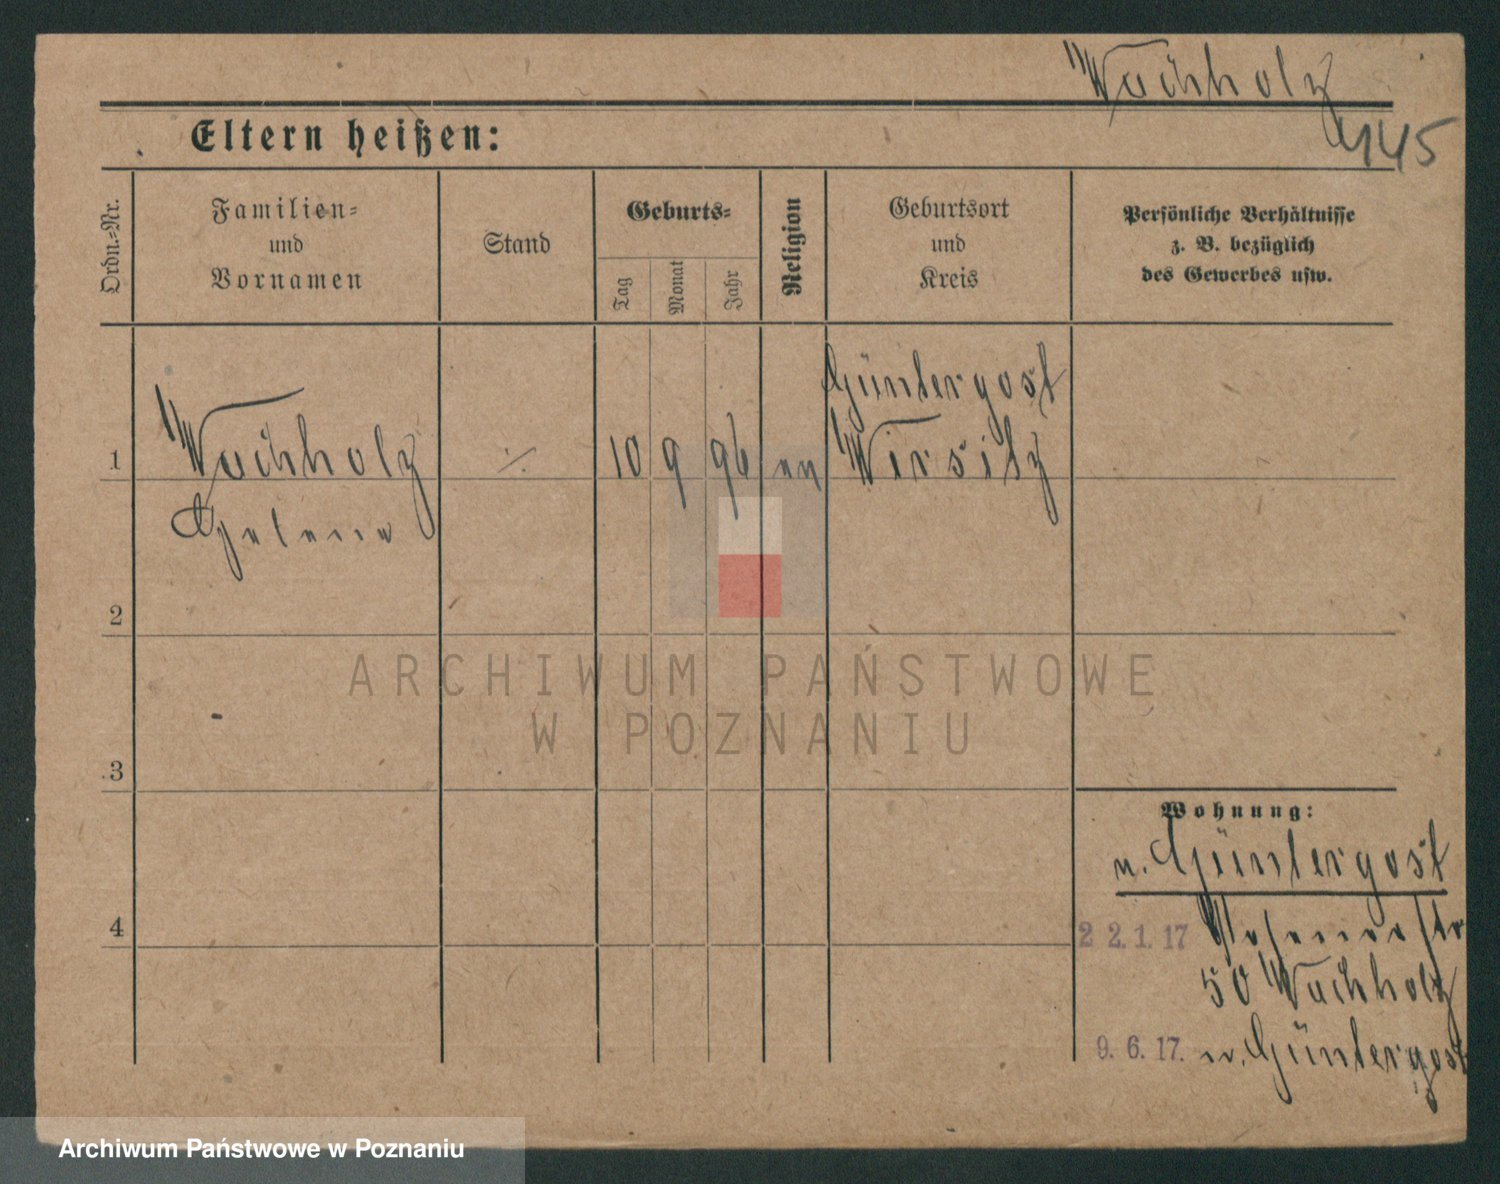 Wachholz
145
Eltern heißen:
Ordn.-Nr.
Familien-
und
Vornamen
Stand
Geburts-
Tag
Monat
Jahr
Religion
Geburtsort
und
Kreis
Persönliche Verhältnisse
z. B. bezüglich
des Gewerbes usw.
Güntergost
1 Wachholz ./. 10 9 96 Wirsitz
Helene
2
3
4
ARCHIWUM PAŃSTWOWE
W POZNANIU
Wohnung:
n. Güntergost
22.1.17 Posenerstr
50 Wachholz
9.6.17. n. Güntergost
Archiwum Państwowe w Poznaniu